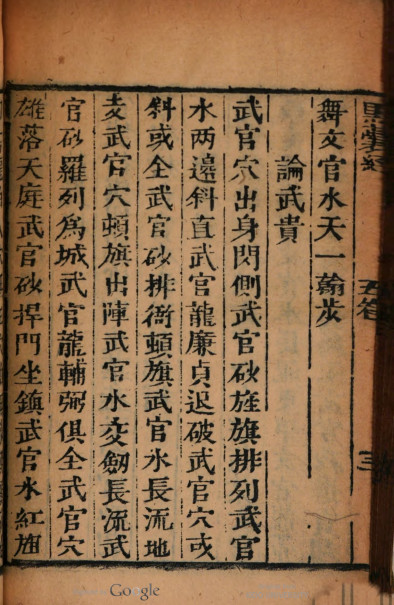 舞文官水天一翰步
論武貴
武官穴出身閃側武官砂旌旗排列武官
水两邉斜直武官龍廉貞迟破武官穴或
斜或全武官砂排衙頓旗武官水長流地
支武官穴頓旗出陣武官水交劔長流武
官砂羅列爲城武官龍輔弼俱全武官穴
雄落天庭武官砂捍門坐鎮武官水紅旗
五卷
三
Google